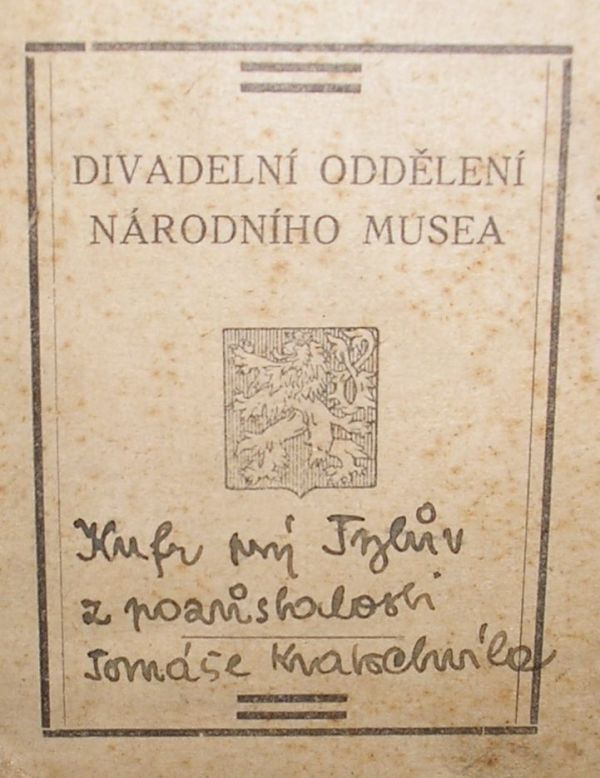 DIVADELNÍ ODDĚLENÍ
NÁRODNÍHO MUSEA
Kufr prý Tylův
z pozůstalosti
Tomáše Kratochvíla